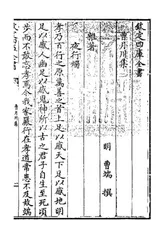 欽定四庫全書
曹月川集
明 曹端 撰
雜著
夜行燭
孝乃百行之原萬善之首上足以感天下足以感地明
足以感人幽足以感鬼神所以古之君子自生至死頃
步而不敢忘孝焉今我家嚴行在孝道常患不及故端